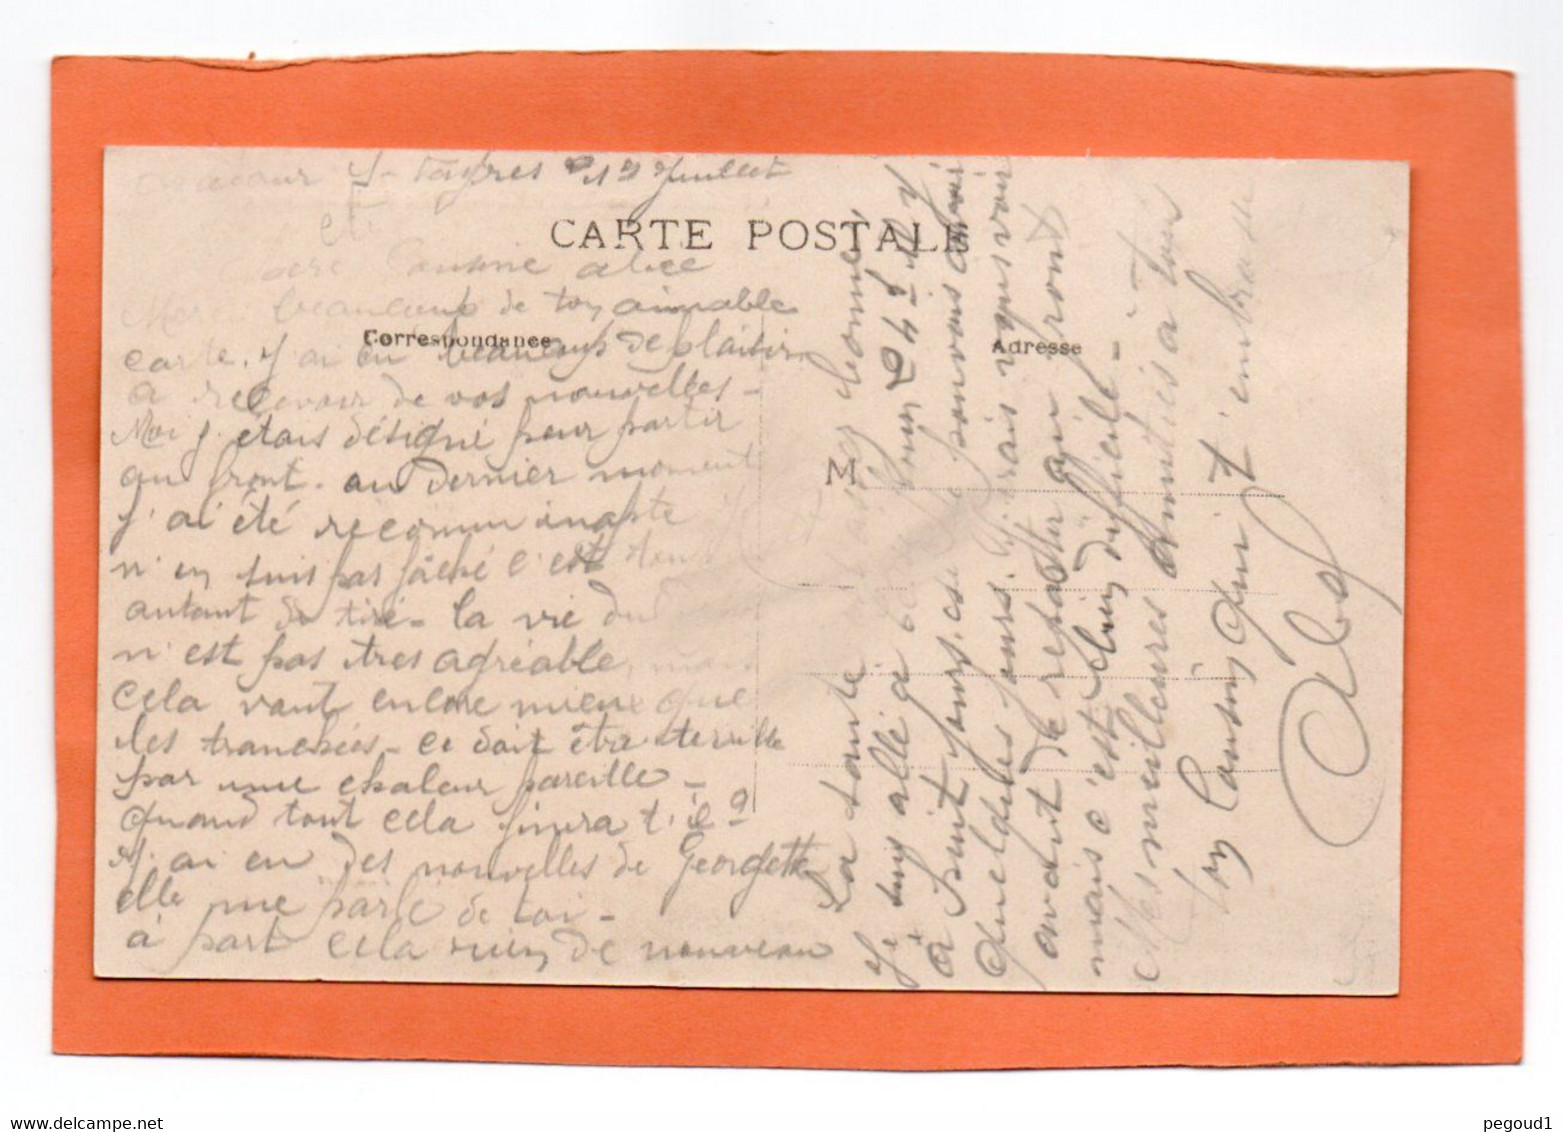 Juillet
CARTE POSTALE
Cousine
beaucoup de ton aimable
Correspondance
carte. J'ai eu beaucoup de plaisir
a recevoir de vos nouvelles -
Moi j'etais désigné pour partir
au front. au dernier moment
j'ai été reconnu inapte
n'en suis pas faché c'est
autant de tiré - la vie du
n'est pas tres agréable, mais
cela vaut encore mieux que
les tranchées - ce doit être terrible
par une chaleur pareille -
quand tout cela finira t'il ?
J'ai eu des nouvelles de Georgette
elle me parle de toi -
à part cela rien de nouveau
Adresse
M
La santé est assez bonne
Je suis allé a
jours. je pouvais avoir
quelques jours. j'irais vous voir
avant de repartir au front
mais c'est bien difficile -
Mes meilleures amitiés a tous
ton Cousin qui t'embrasse
pegoud1